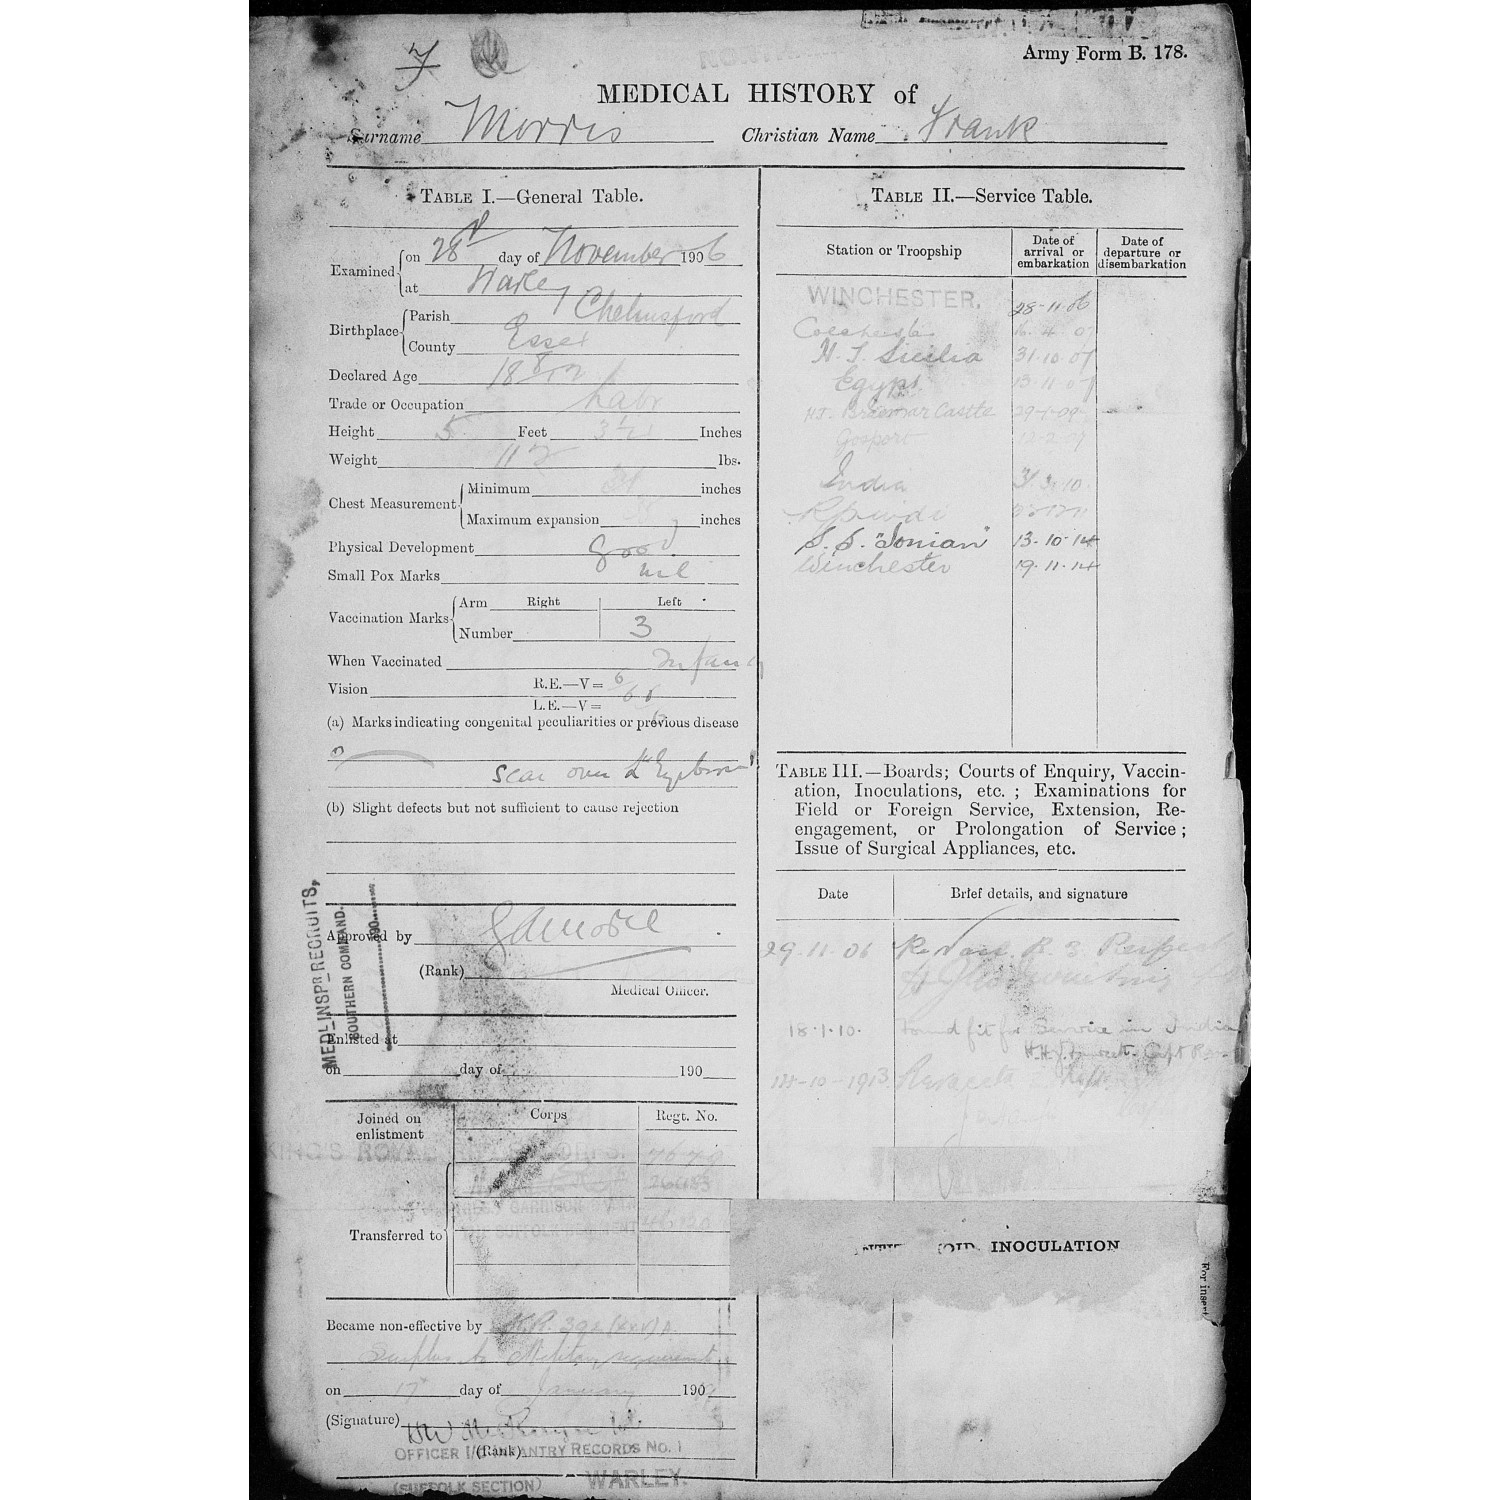 Army Form B. 178.
MEDICAL HISTORY of
Surname Morris Christian Name Frank
TABLE I.—General Table.
Examined on 28 day of November 1906
at Warley
Birthplace Parish Chelmsford
County Essex
Declared Age 18 8/12
Trade or Occupation Labr
Height 5 Feet 3 1/2 Inches
Weight 112 lbs.
Chest Measurement Minimum inches
Maximum expansion inches
Physical Development good
Small Pox Marks nil
Vaccination Marks Arm Right Left
Number 3
When Vaccinated Infancy
Vision R.E.—V= 6/6
L.E.—V=
(a) Marks indicating congenital peculiarities or previous disease
Scar over Lt Eyebrow
(b) Slight defects but not sufficient to cause rejection
MEDL INSPR RECRUITS,
SOUTHERN COMMAND.
190
Approved by
(Rank)
Medical Officer.
Enlisted at
on day of 190
Joined on enlistment Corps Regt. No.
KING'S ROYAL RIFLE CORPS. 7679
GARRISON
SUFFOLK REGIMENT
Transferred to
Became non-effective by K.R. 392 (xxv)
Surplus to Military requirements
on 17 day of January 190
(Signature)
(Rank)
OFFICER I/C INFANTRY RECORDS No. 1
(SUFFOLK SECTION) WARLEY.
TABLE II.—Service Table.
Station or Troopship Date of arrival or embarkation Date of departure or disembarkation
WINCHESTER. 28-11-06
Colchester 16-4-07
H.T. Sicilia 31-10-07
Egypt 13-11-07
H.T. Braemar Castle 29-1-09
Gosport 12-2-09
India
R'pindi
S.S. "Ionian" 13-10-14
Winchester 19-11-14
TABLE III.—Boards; Courts of Enquiry, Vaccin-
ation, Inoculations, etc. ; Examinations for
Field or Foreign Service, Extension, Re-
engagement, or Prolongation of Service ;
Issue of Surgical Appliances, etc.
Date Brief details, and signature
29-11-06 Re Vacc.
18-1-10. Found fit for Service in India
Capt
14-10-1913
INOCULATION
For insert